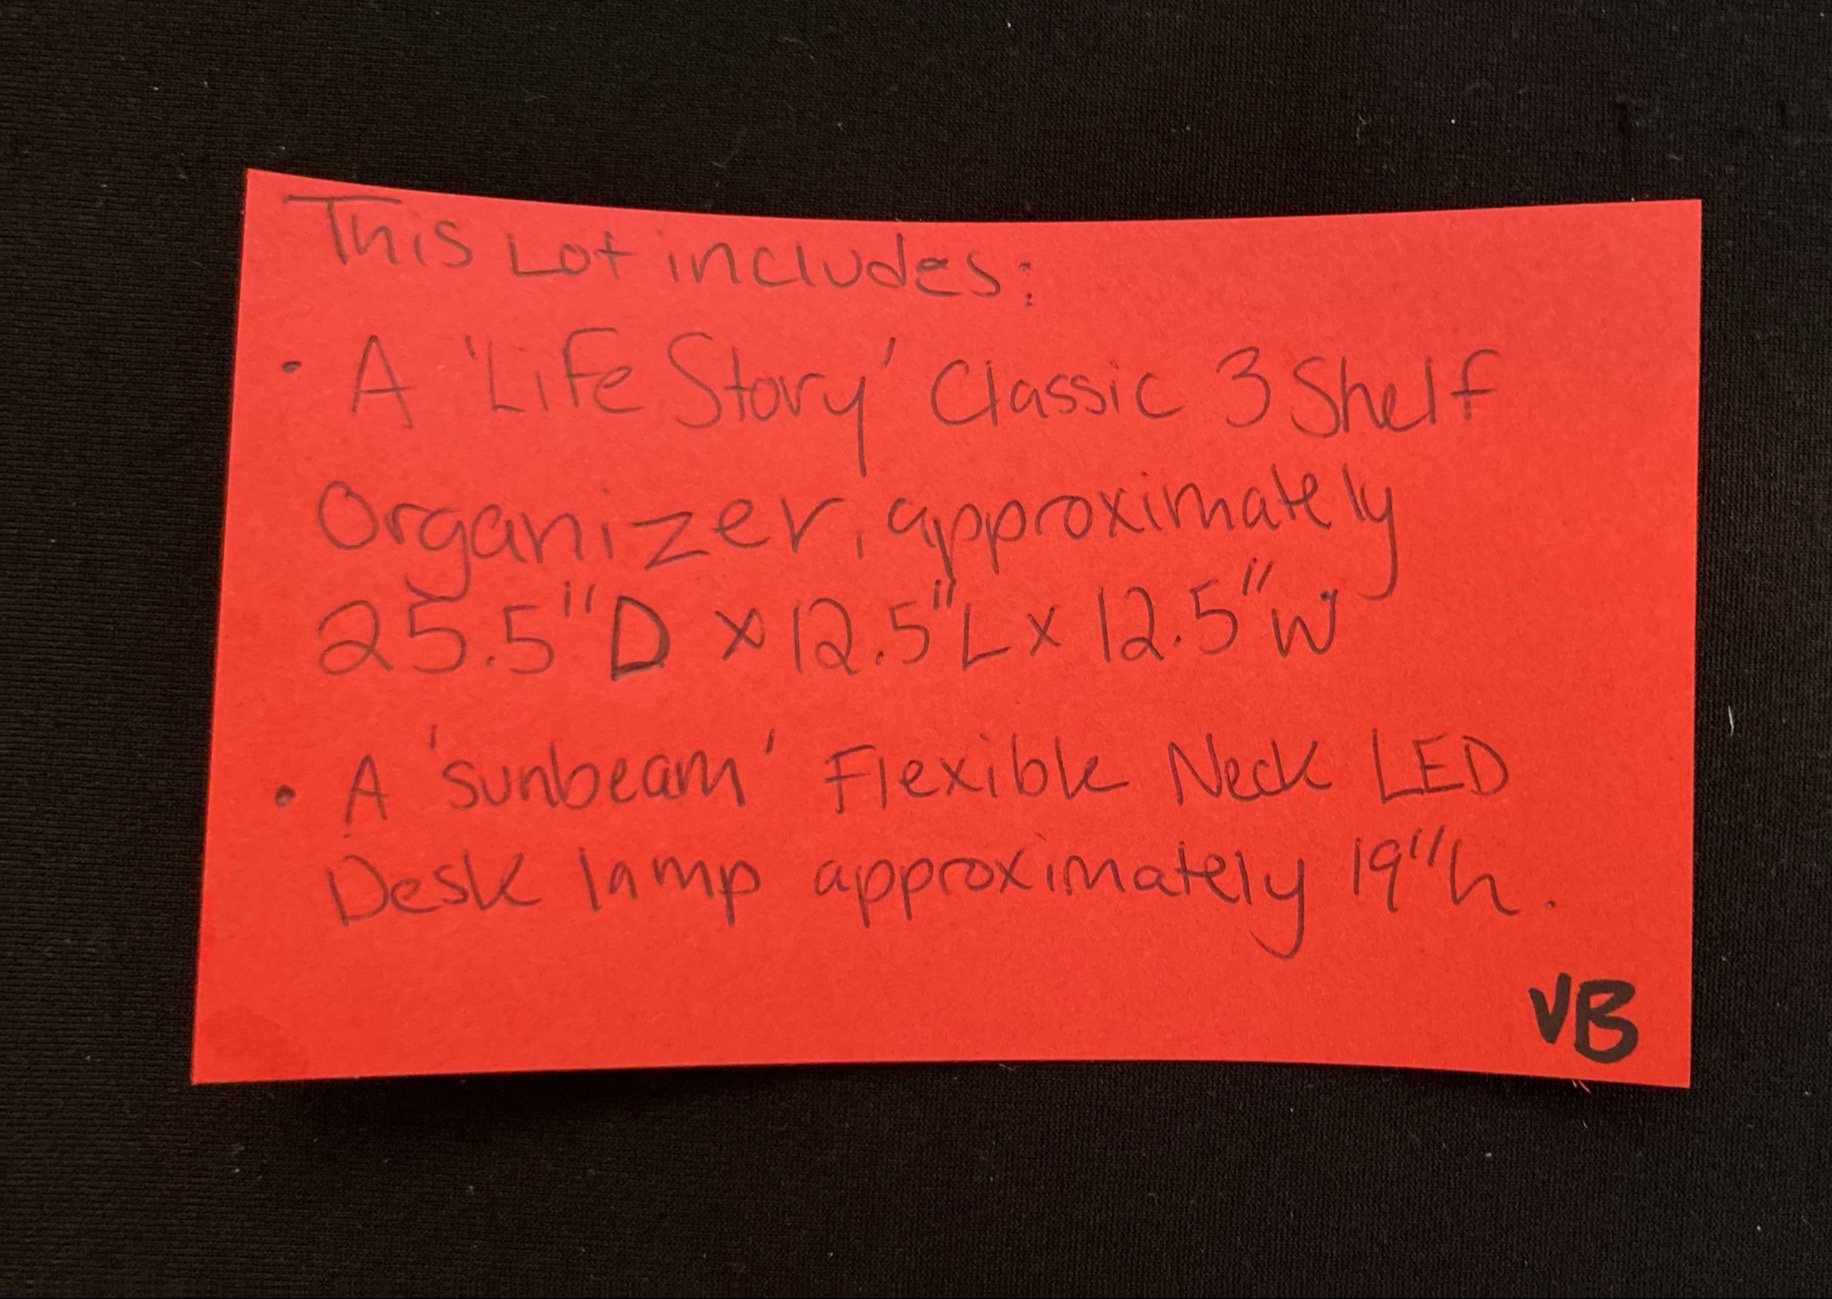 This Lot includes:
• A 'Life Story' Classic 3 Shelf
Organizer, approximately
25.5"D x 12.5"L x 12.5"W
• A 'sunbeam' Flexible Neck LED
Desk lamp approximately 19"h.
VB